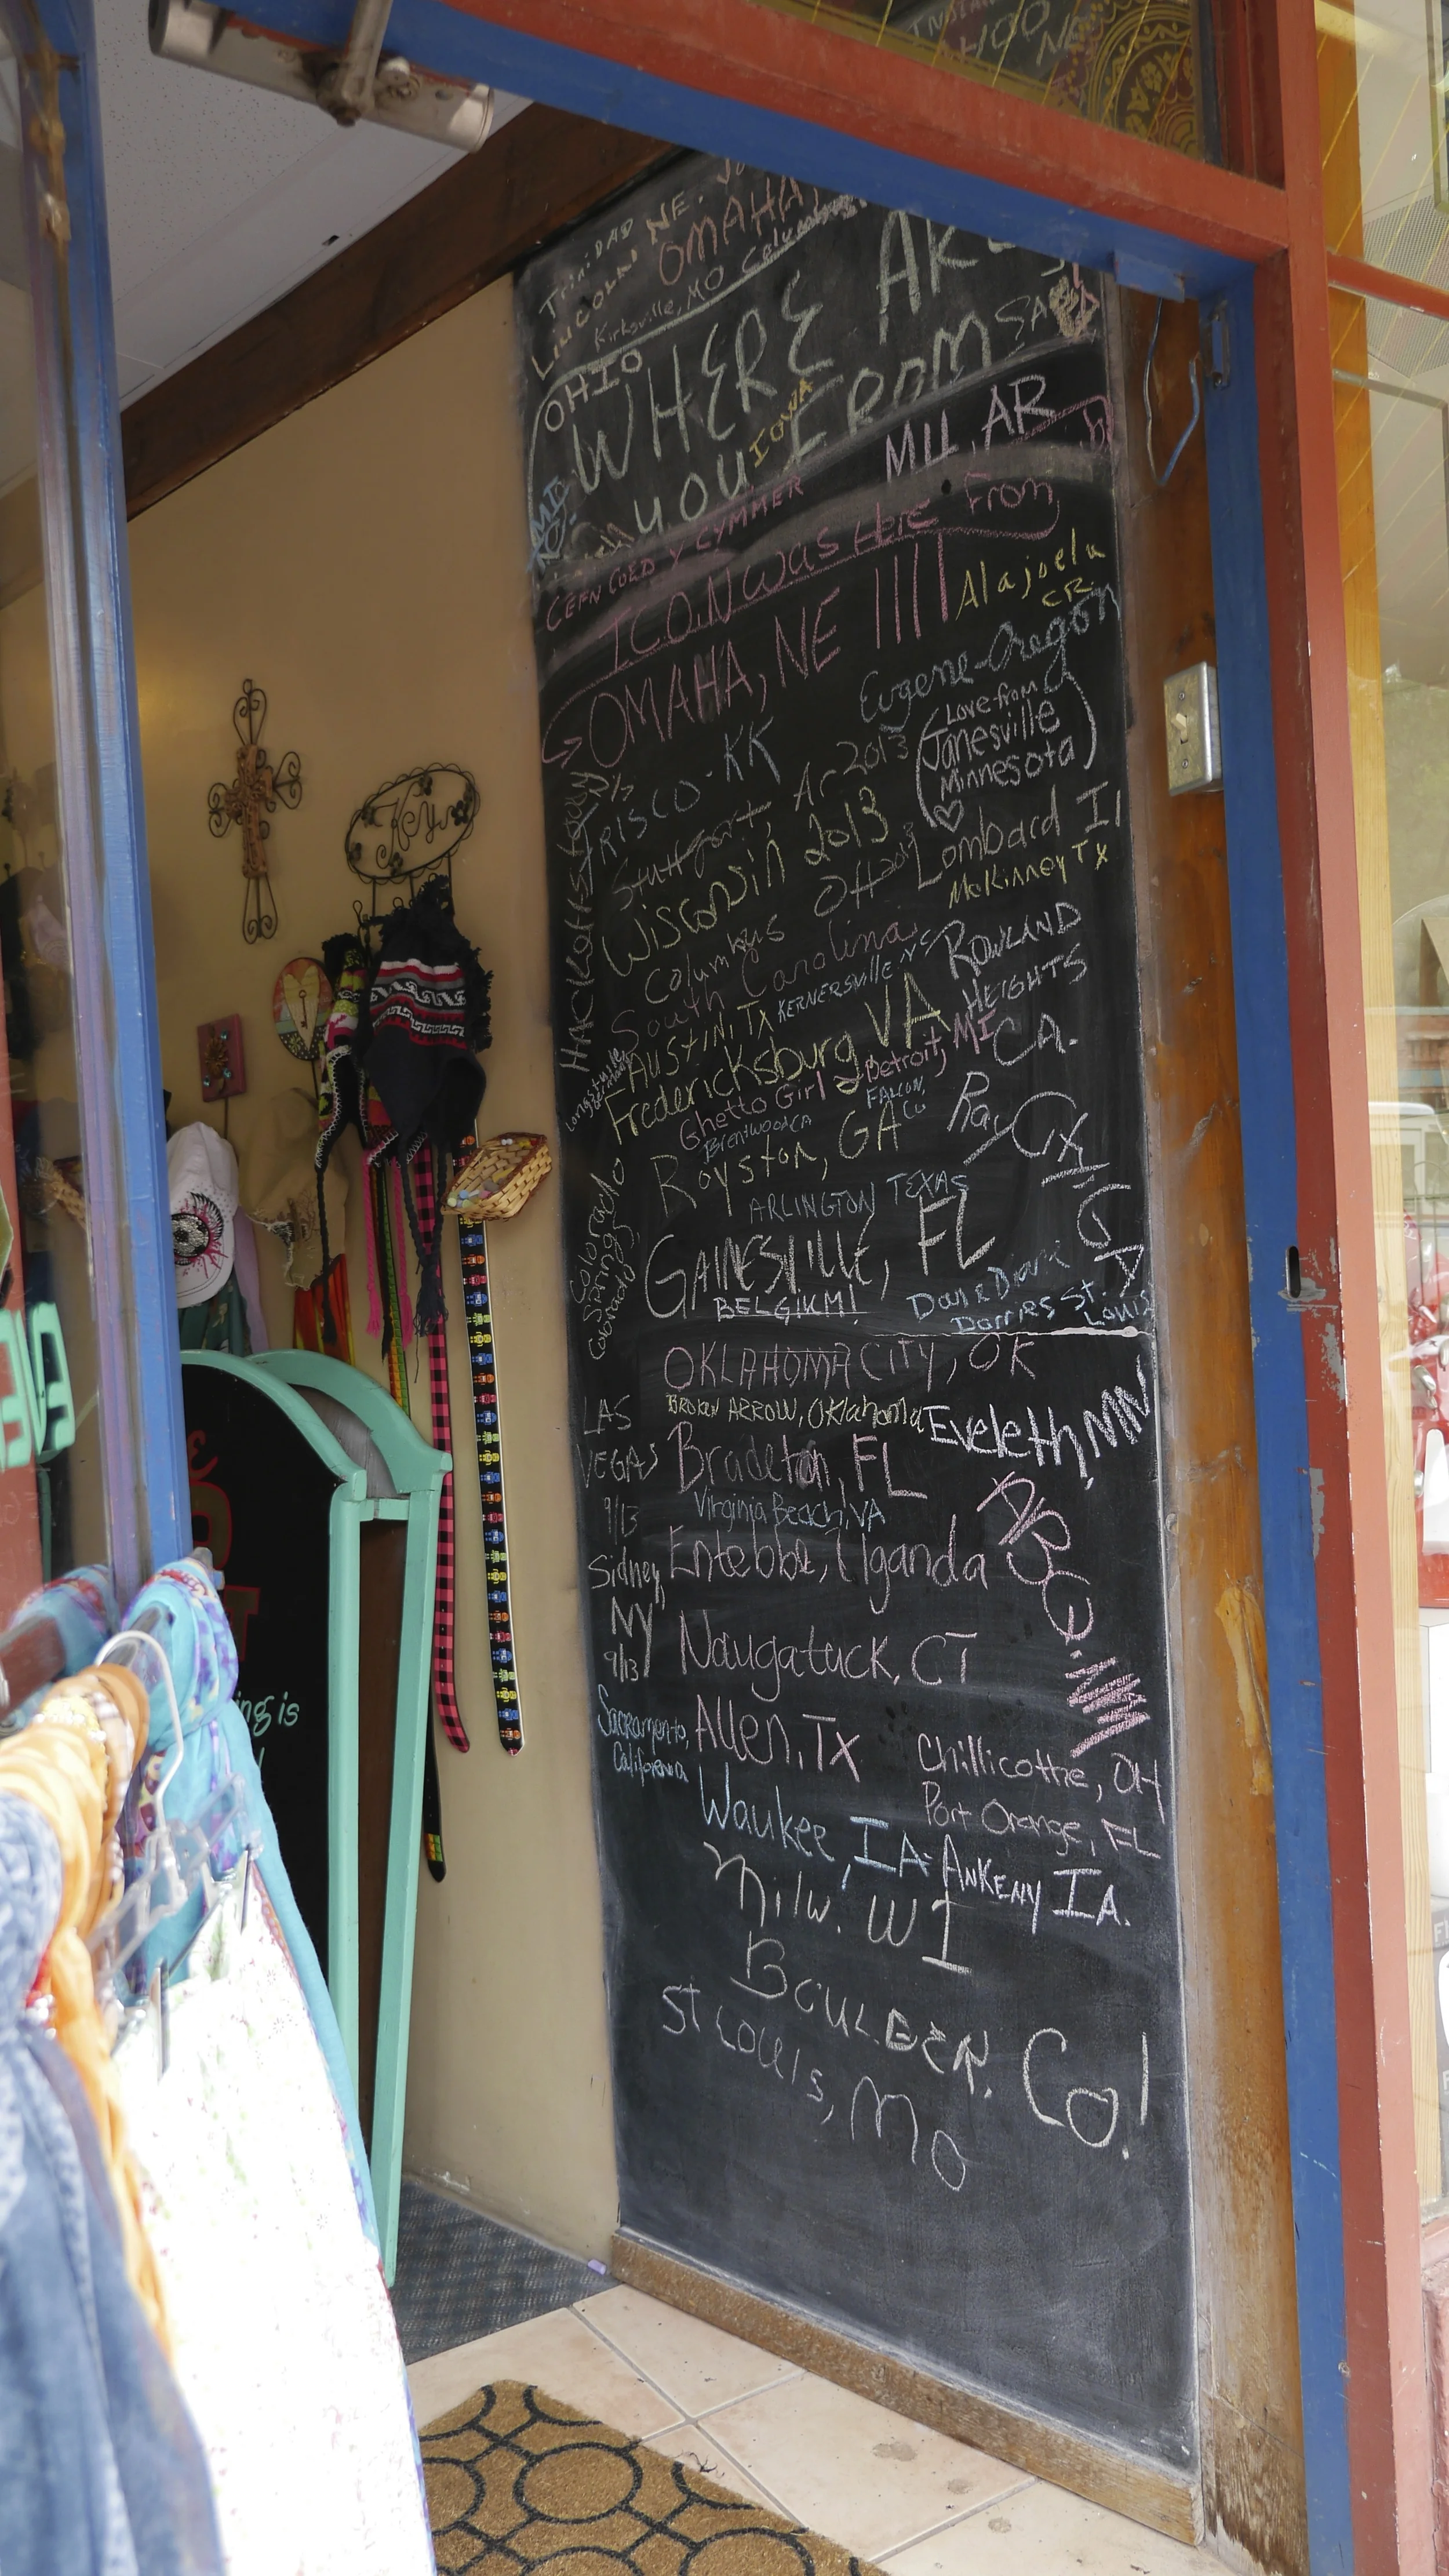 TriNiDAD
LiNcolN NE.
OMAHA!
Kirksville, MO Columbus
OHIO
WHERE ARE
YOU FROM
IOWA
SARA
MILL, AR
MI
CEFN COED Y CYMMER
ICON was Here From
OMAHA, NE !!!!
Alajuela
CR.
Eugene-Oregon
(Love from
Janesville
Minnesota)
FRISCO - KK
Stuttgart, Ar 2013
Wisconsin 2013
Lombard Il
McKinney TX
Columbus OH 2013
South Carolina
KERNERSVILLE NC
ROWLAND
HEIGHTS
CA.
HACKettstown
AUSTIN, TX
Fredericksburg VA
Ghetto Girl Detroit, MI
Brentwood CA
FALCON,
Co
Royston, GA
ARLINGTON TEXAS
Colorado
Springs
Colorado
GAINESVILLE, FL
BELGIKM!
Dan & Diane
Darries St.
Louis
OKLAHOMA CITY, OK
BROKEN ARROW, OKlahoma
Eveleth, MN
LAS
VEGAS
9/13
Bradeton, FL
Virginia Beach, VA
Entebbe, Uganda
Sidney,
NY
9/13
Naugatuck, CT
Sacramento,
California
Allen, Tx
Chillicothe, OH
Port Orange, FL
Waukee, IA - ANKENY IA.
Milw. WI
BOULDER, Co!
St Louis, Mo
Keys
ing is